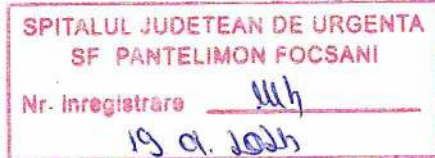 SPITALUL JUDETEAN DE URGENTA
SF PANTELIMON FOCSANI
Nr. inregistrare
19 01. 2024